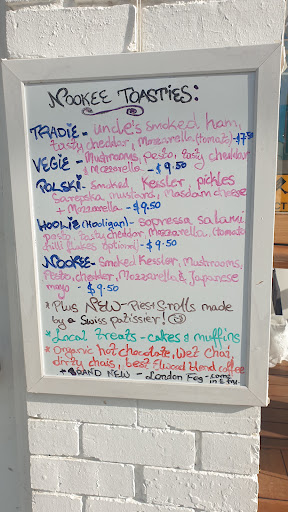 NOOKEE TOASTIES:
TRADIE - uncle's smoked ham,
tasty cheddar, Mozzarella (tomato) - $7.50
VEGIE - Mushrooms, pesto, tasty cheddar
& Mozzarella - $9.50
POLSKI - smoked Kessler, pickles
Sarepska mustard, Maasdam cheese
+ Mozzarella - $9.50
HOOLIE (Hooligan) - sopressa salami
pesto, tasty cheddar, Mozzarella, (tomato
chilli flakes optional) - $9.50
NOOKEE - Smoked Kessler, Mushrooms,
Pesto, cheddar, Mozzarella & Japanese
mayo - $9.50
* Plus NEW - Pies + S.rolls made
by a Swiss patissier!
* Local treats - cakes & muffins
* Organic hot chocolate, wet chai,
dirty chais, best Elwood blend coffee
* BRAND NEW - London Fog - come
in & try